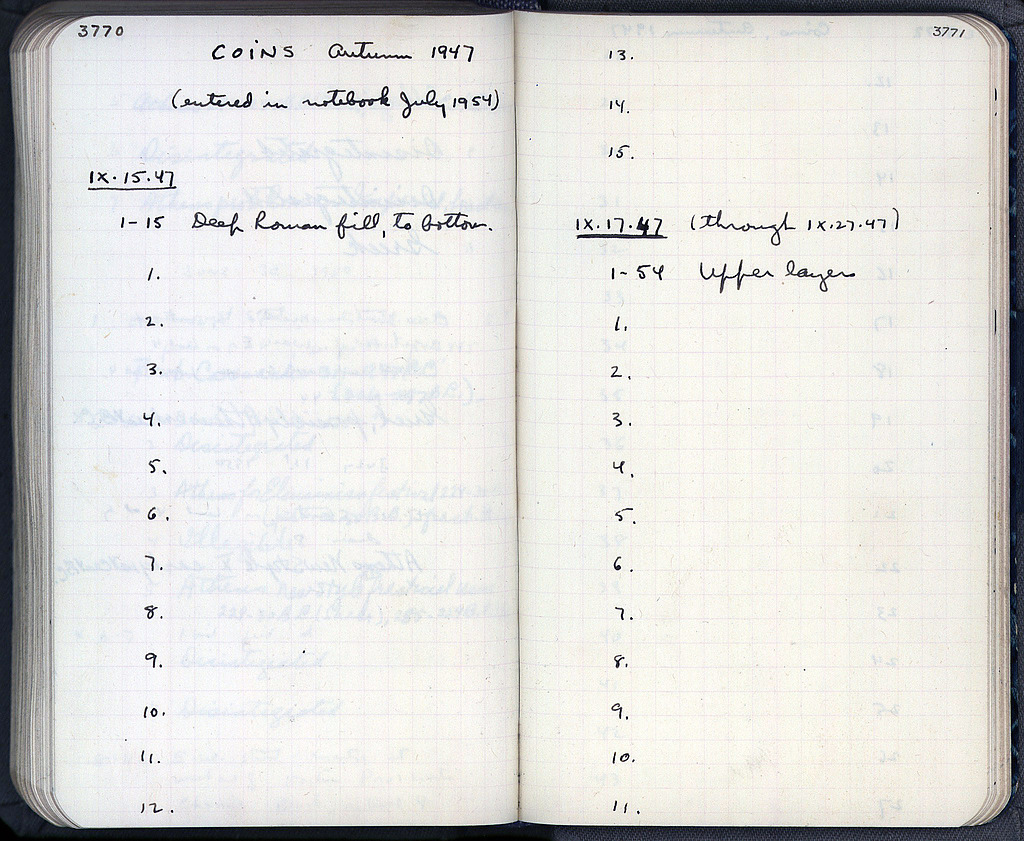 3770
COINS Autumn 1947
(entered in notebook July 1954)
IX.15.47
1-15 Deep Roman fill, to bottom.
1.
2.
3.
4.
5.
6.
7.
8.
9.
10.
11.
12.
3771
13.
14.
15.
IX.17.47 (through IX.27.47)
1-54 Upper layers
1.
2.
3.
4.
5.
6.
7.
8.
9.
10.
11.